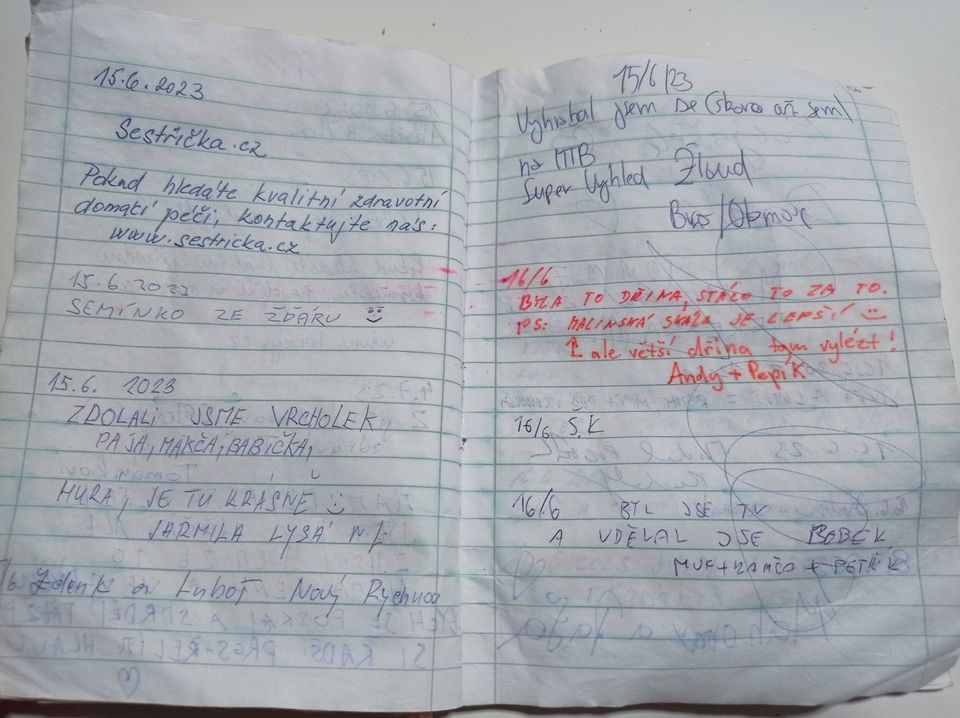 15.6.2023
Sestřička.cz
Pokud hledáte kvalitní zdravotní
domácí péči, kontaktujte nás:
www.sestricka.cz
15.6.2023
SEMÍNKO ZE ŽĎÁRU
15.6. 2023
ZDOLALI JSME VRCHOLEK
PAJA, MAKČA, BABIČKA,
HURÁ, JE TU KRÁSNĚ
JARMILA LYSÁ N.L.
Zdeněk a Luboš Nový Rychnov
15/6/23
Vyhrabal jsem se (skoro až sem)
na MTB
Super Výhled Žloud
Bro/
16/6
BYLA TO DŘINA, STÁLO TO ZA TO.
PS: MALINSKÁ SKÁLA JE LEPŠÍ
↑ ale větší dřina tam vylézt!
Andy + Pepík
16/6 Š.K
16/6 BYL JSE TU
A UDĚLAL JSE BOBEK
+ PETŘÍK